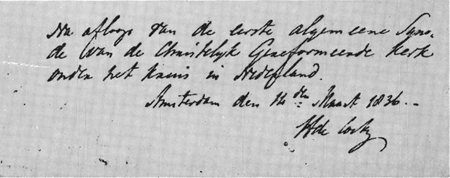 Na afloop van de eerste algemeene Syno-
de van de Christelyk Gereformeerde Kerk
onder het Kruis in Nederland.
Amsterdam den 14den Maart 1836.
H de Cock